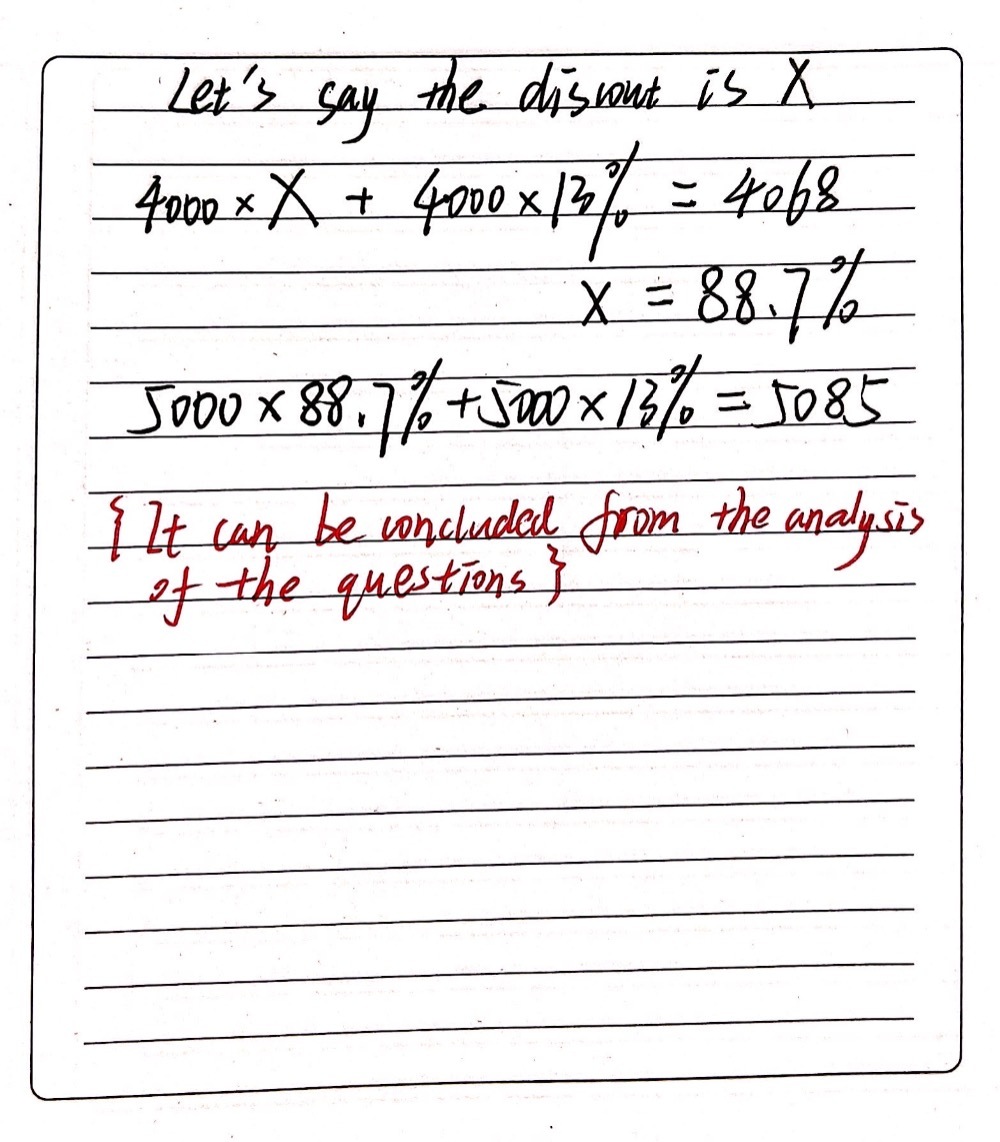 Let's say the discout is X
4000 × X + 4000 × 13% = 4068
X = 88.7%
5000 × 88.7% + 5000 × 13% = 5085
{ It can be concluded from the analysis
of the questions }